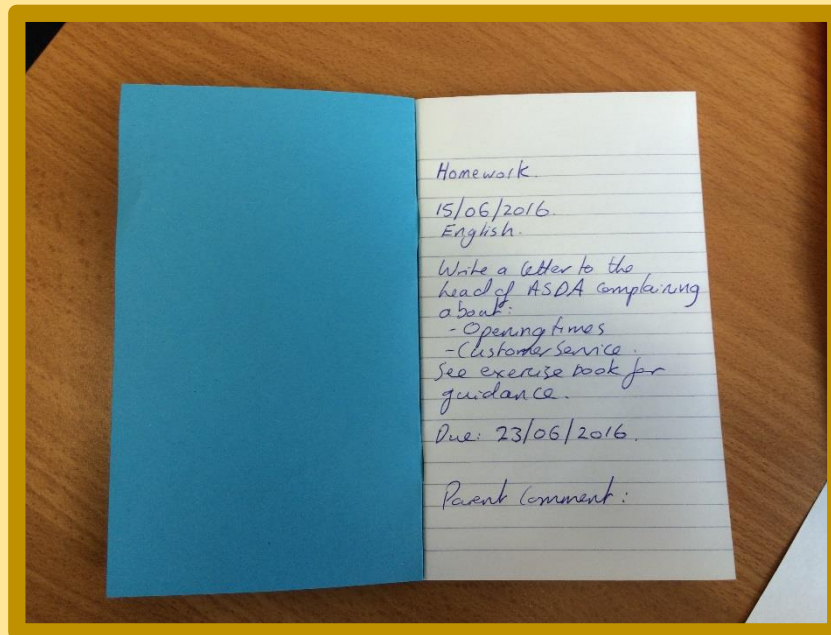 Homework.
15/06/2016.
English.
Write a letter to the
head of ASDA complaining
about:
- Opening times
- Customer Service.
See exercise book for
guidance.
Due: 23/06/2016.
Parent Comment: